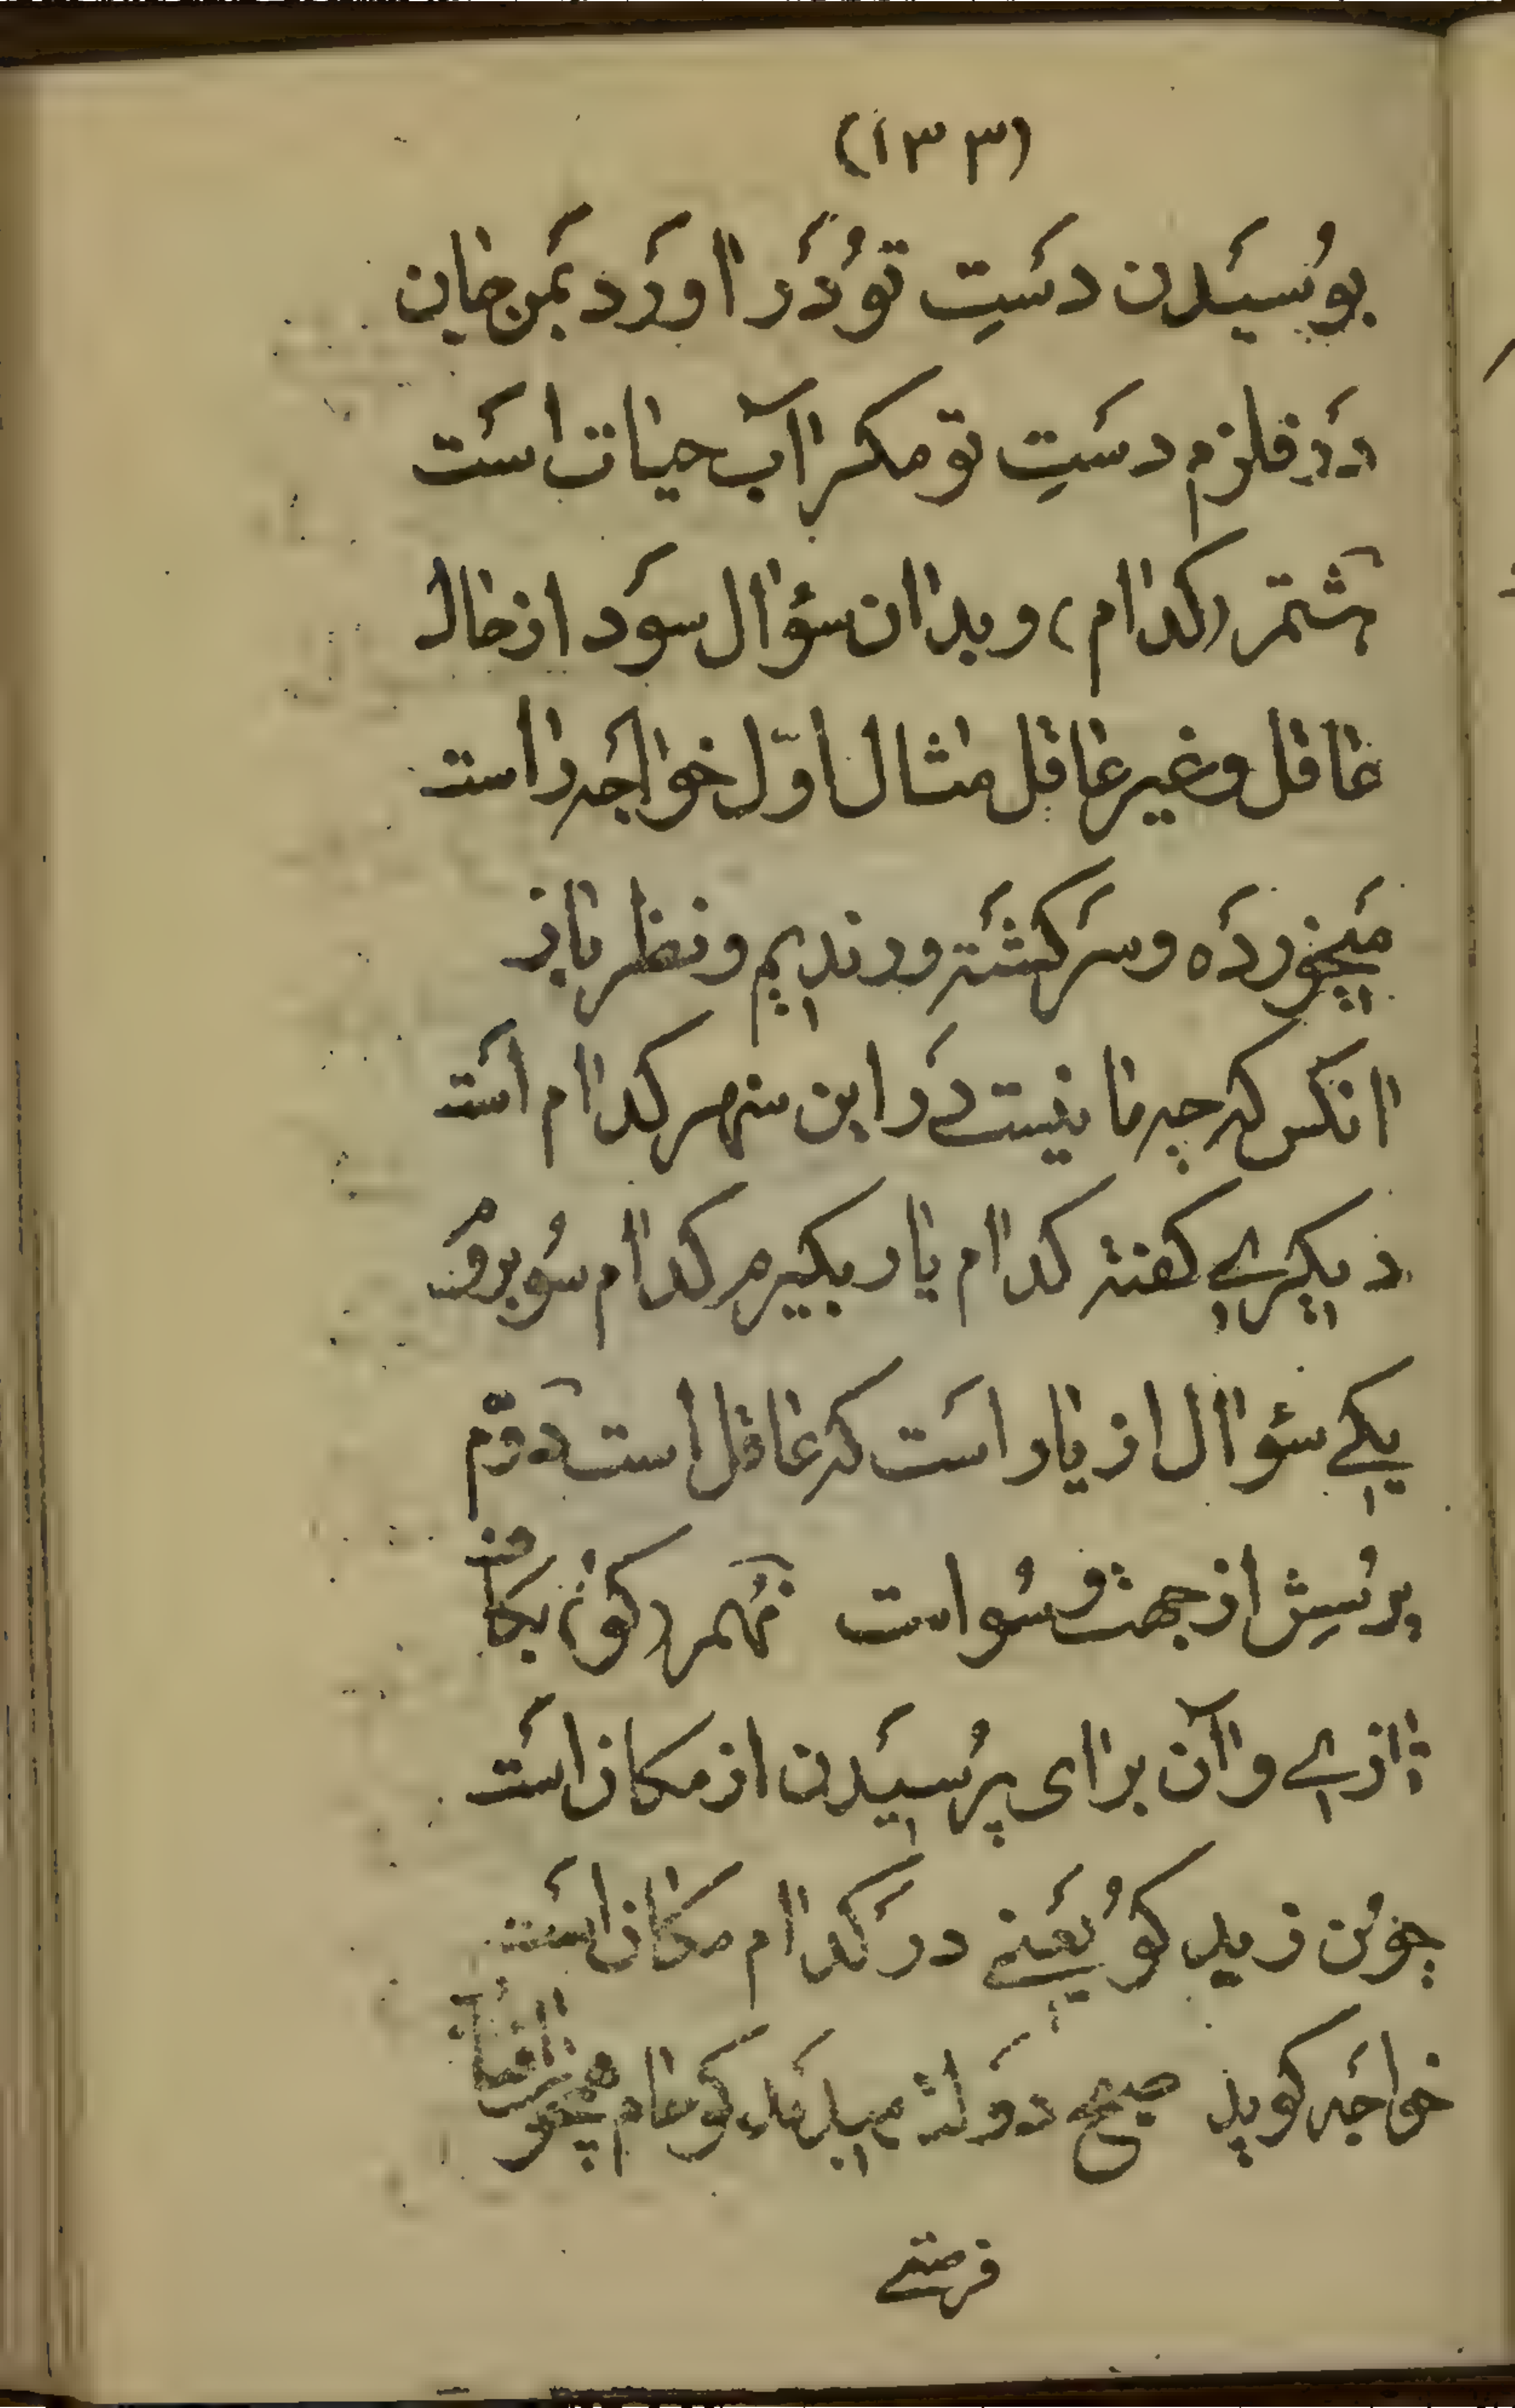 (۱۳۳)
بوُسیَدن دسَتِ توُ دَر اورَد بمَن جان
دَر قلزم دسَتِ تو مکر آب حیات اسَت
هشتمر (کدام) و بدان سؤال سوَد از حال
عاقل و غیر عاقل مثال اوّل خواجَه راست
میَخوردَه و سَرکشتَه و رندیم و نظر باز
انکس که چه ما نیست دَر این شهر کدام اسَت
دیکرے کفته کدام یار بکیرم کدام سُو برومُ
یکے سؤال از یار اسَت که عاقل است دوّم
پرُسِش از جهت و سُو است نُهمر (کو) بکاف
تازے و آن برای پرُسیَدن از مکان اسَت
چوُن زید کوُ یعَنے در کدام مکان اسَت
خواجَه کوید صبح دوَلت میدمَد کو جام همچو آفتاب
فرصتے